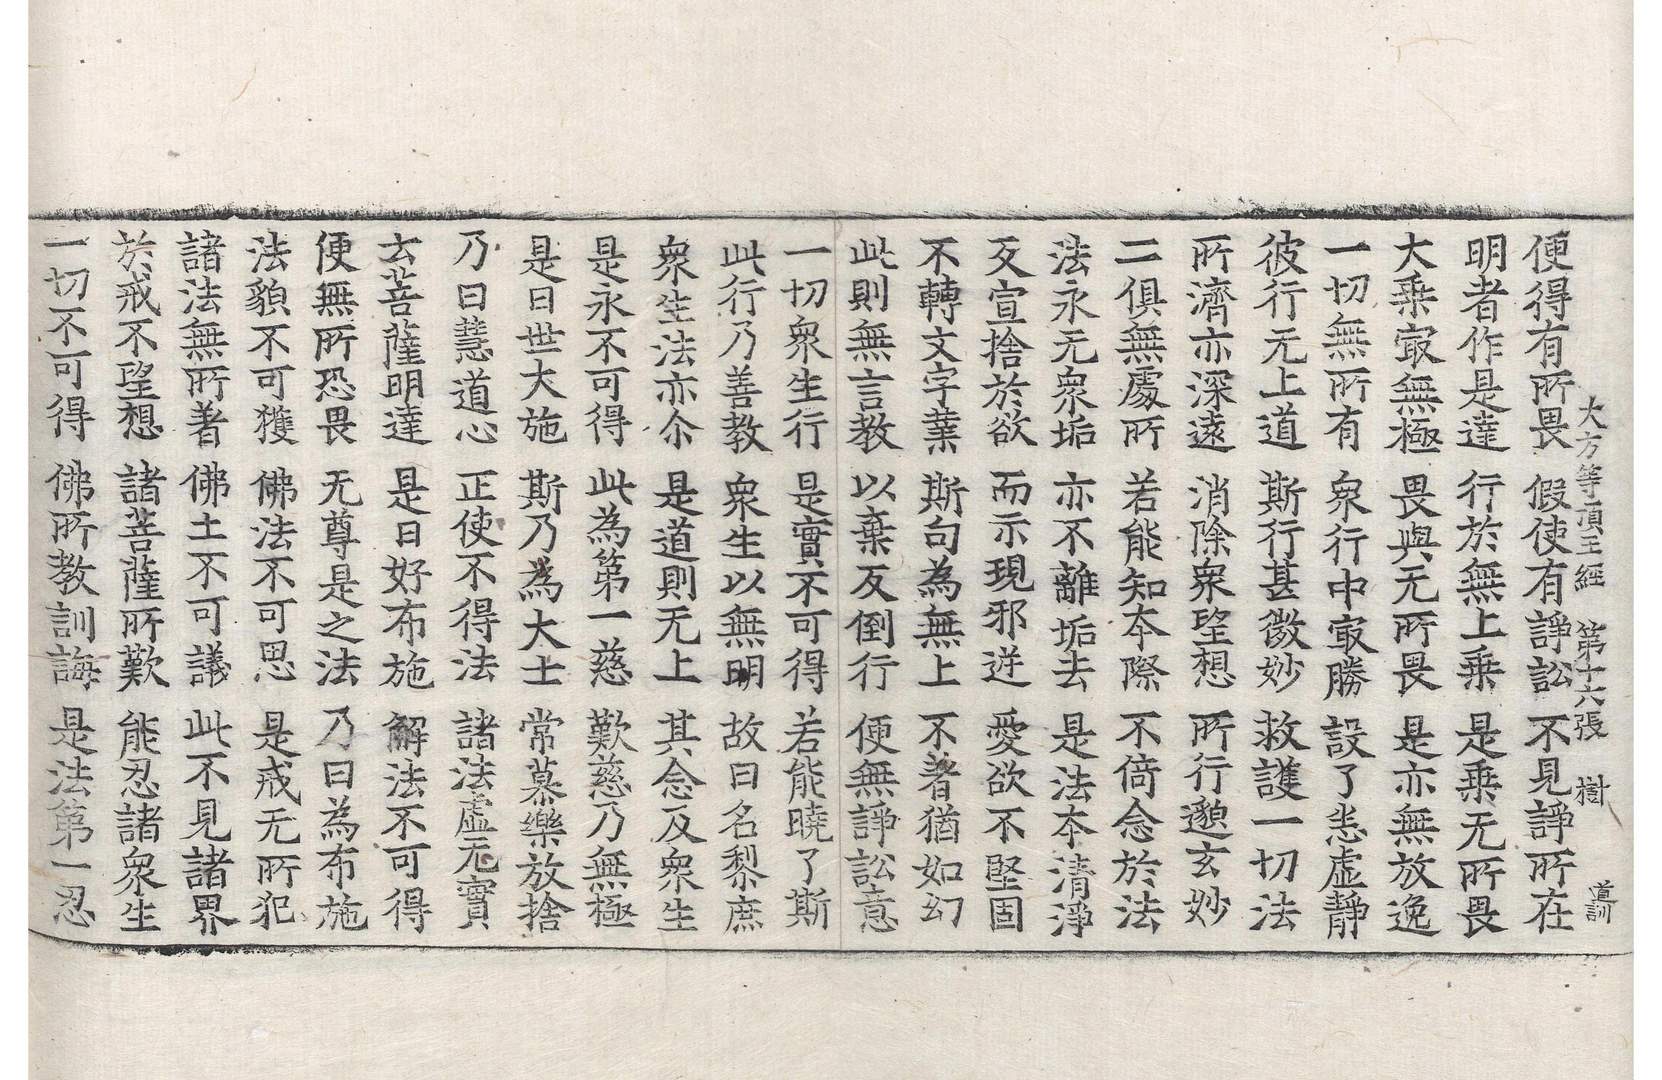 大方等頂王經　第十六張　樹　道訓
便得有所畏　假使有諍訟　不見諍所在
明者作是達　行於無上乗　是乗无所畏
大乗㝡無極　畏與无所畏　是亦無放逸
一切無所有　衆行中㝡勝　設了恚虛靜
彼行无上道　斯行甚微妙　救護一切法
所濟亦深遠　消除衆望想　所行邈玄妙
二俱無處所　若能知夲際　不倚念於法
法永无衆垢　亦不離垢去　是法夲清淨
叐宣捨於欲　而示現邪逆　愛欲不堅固
不轉文字業　斯句為無上　不著猶如幻
此則無言教　以棄反倒行　便無諍訟意
一切衆生行　是實不可得　若能曉了斯
此行乃善教　衆生以無明　故曰名黎庶
衆生法亦尒　是道則无上　其念及衆生
是永不可得　此為第一慈　歎慈乃無極
是曰世大施　斯乃為大士　常慕樂放捨
乃曰慧道心　正使不得法　諸法虛无實
去菩薩明達　是曰好布施　解法不可得
便無所恐畏　无尊是之法　乃曰為布施
法貌不可獲　佛法不可思　是戒无所犯
諸法無所著　佛土不可議　此不見諸界
於戒不望想　諸菩薩所歎　能忍諸衆生
一切不可得　佛所教訓誨　是法第一忍